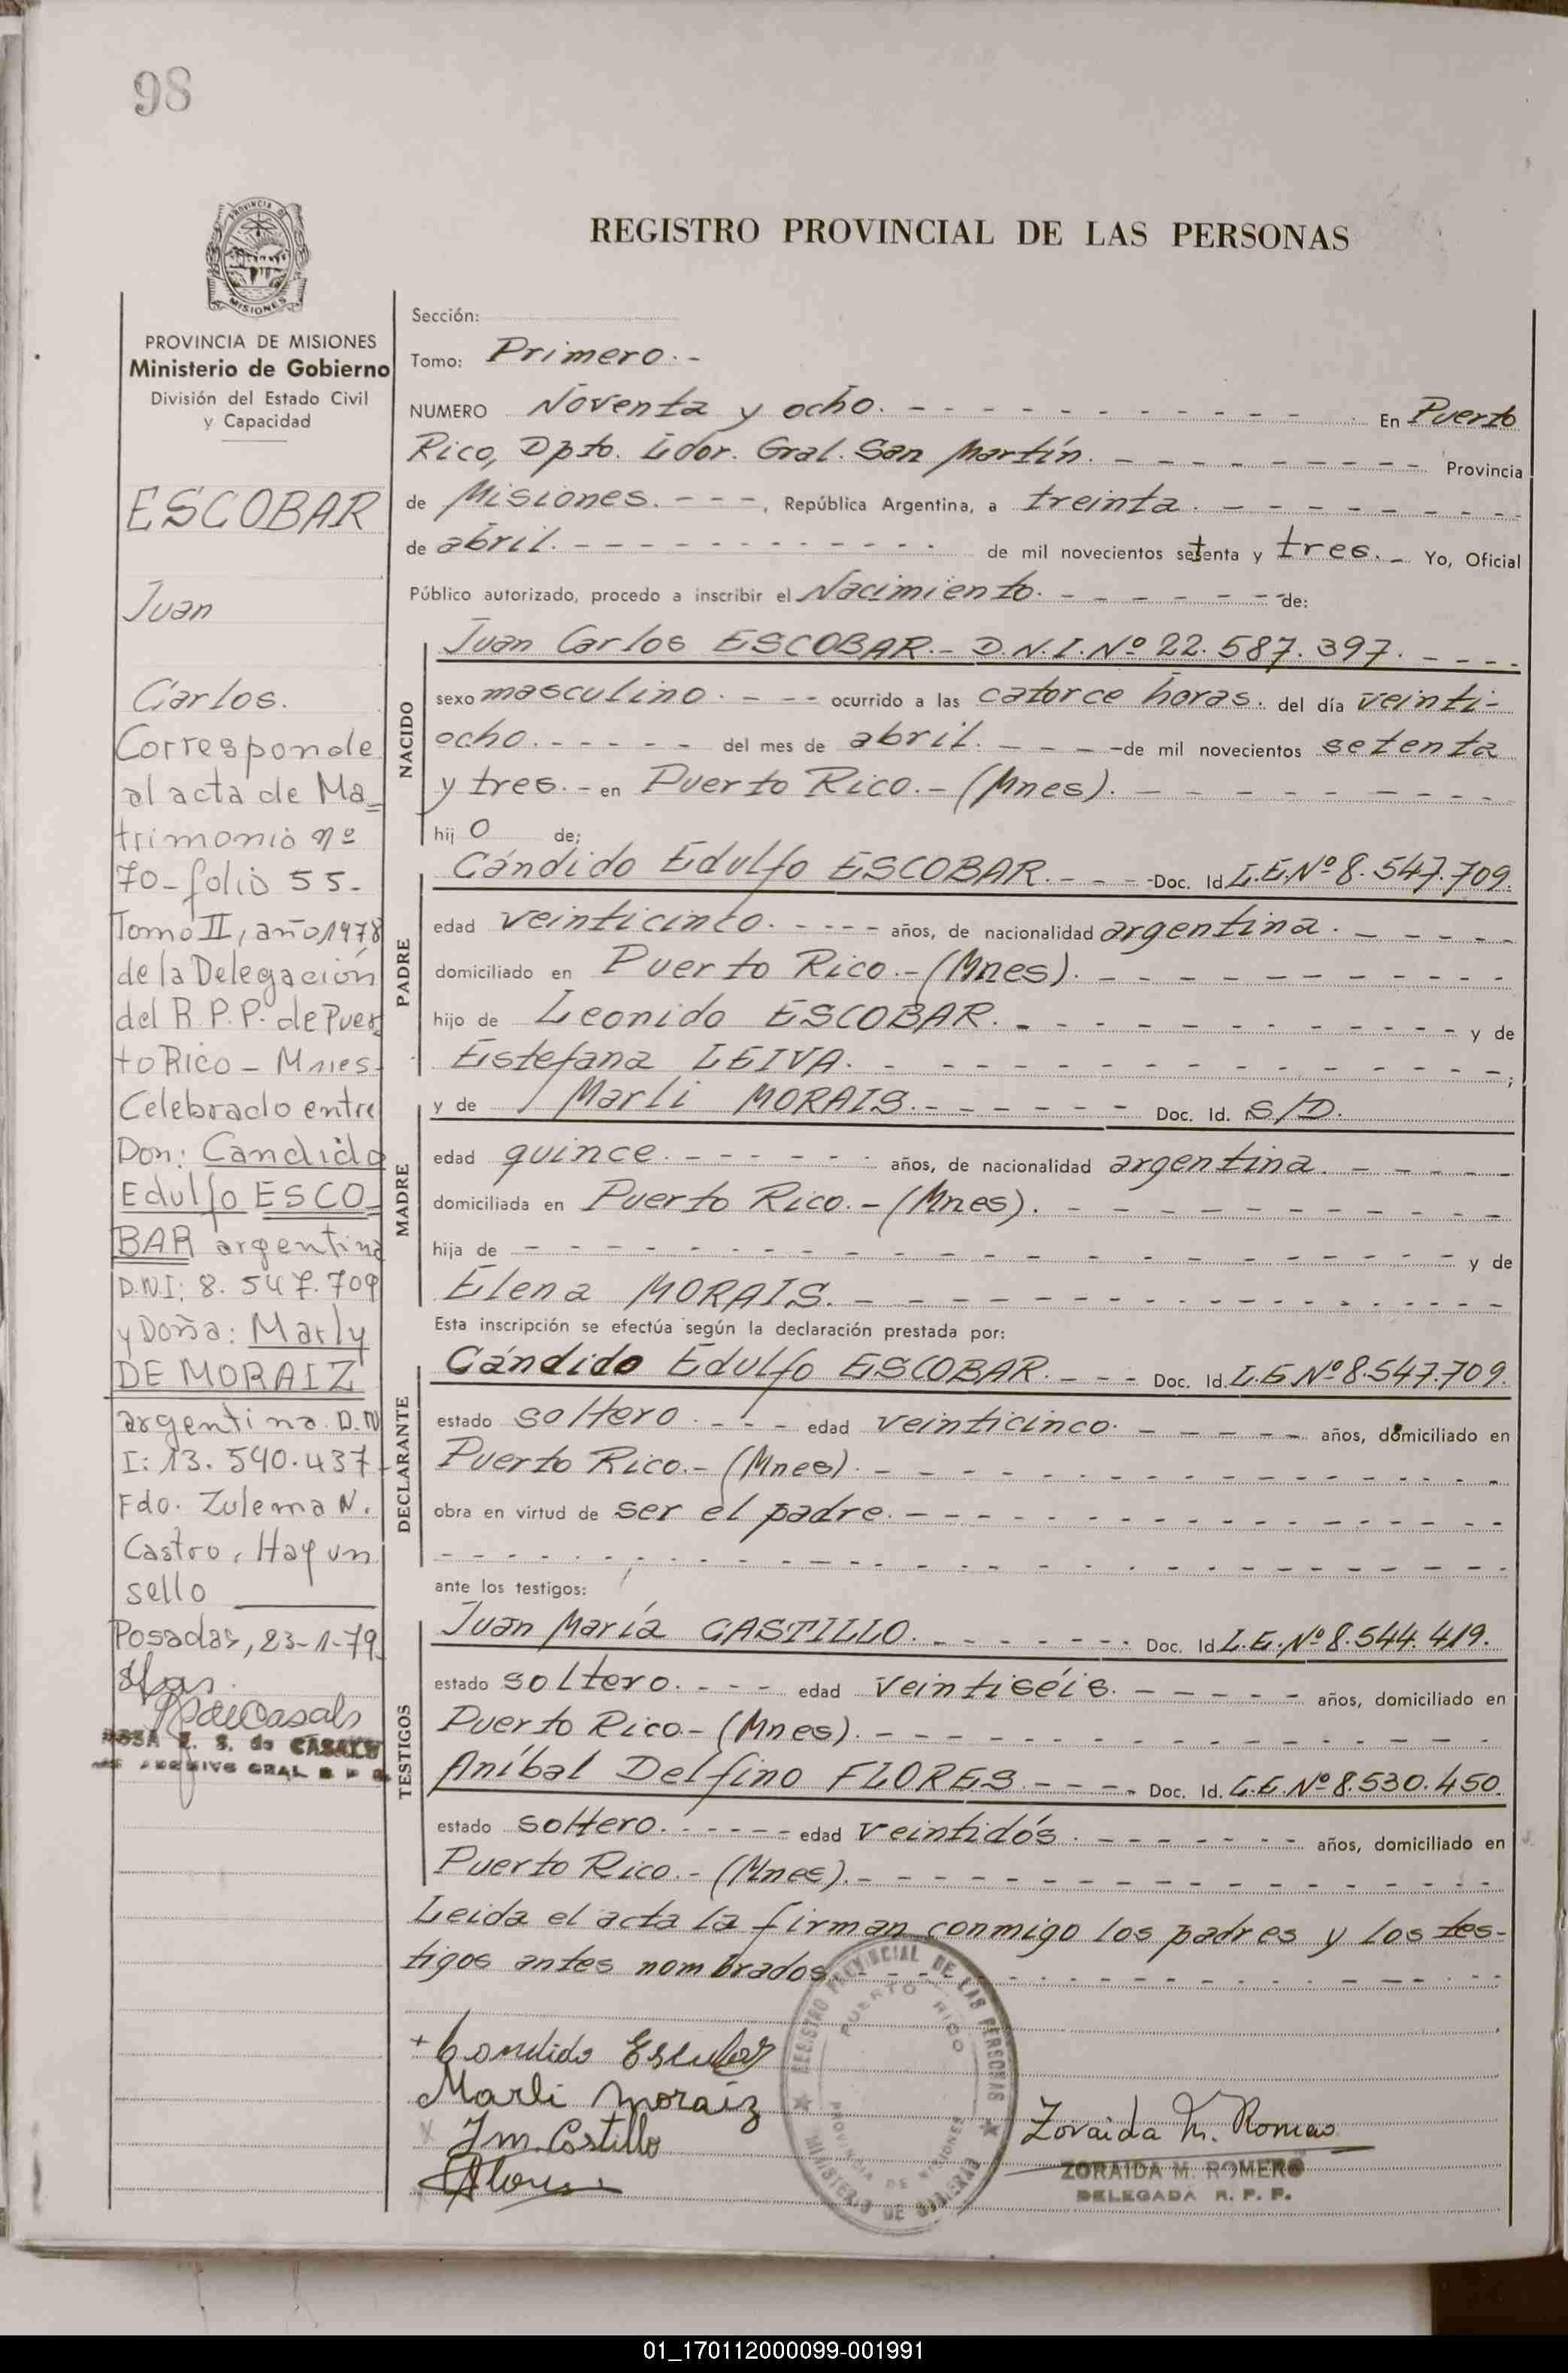 98
PROVINCIA DE MISIONES
REGISTRO PROVINCIAL DE LAS PERSONAS
PROVINCIA DE MISIONES
Ministerio de Gobierno
División del Estado Civil
y Capacidad
ESCOBAR
Juan
Carlos.
Corresponde
al acta de Ma_
trimonio nº
70-folio 55-
Tomo II, año 1978
de la Delegación
del R.P.P. de Puer
to Rico - Mnes.
Celebrado entre
Don: Candido
Edulfo ESCO_
BAR argentino
D.N.I: 8.547.709
y Doña: Marly
DE MORAIZ
argentina. D.N
I: 13.590.437-
Fdo. Zulema N.
Castro, Hay un
sello
Posadas, 23-1-79
R de Casals
ROSA E. S. de CASALS
ARCHIVO GRAL R P P
Sección:
Tomo: Primero.-
NUMERO Noventa y ocho. En Puerto
Rico, Dpto. Ldor. Gral. San Martín. Provincia
de Misiones. - - -, República Argentina, a treinta.
de abril. de mil novecientos setenta y tres. Yo, Oficial
Público autorizado, procedo a inscribir el Nacimiento. de:
NACIDO
Juan Carlos ESCOBAR.- D.N.I. Nº 22.587.397.
sexo masculino. - - - ocurrido a las catorce horas. del día veinti-
ocho. - - - - - del mes de abril. - - - - de mil novecientos setenta
y tres. - en Puerto Rico.- (Mnes).
hij o de;
PADRE
Cándido Edulfo ESCOBAR. - - - Doc. Id. L.E. Nº 8.547.709.
edad veinticinco. - - - - años, de nacionalidad argentina.
domiciliado en Puerto Rico.- (Mnes).
hijo de Leonido ESCOBAR. y de
Estefana LEIVA. ;
MADRE
y de Marli MORAIS. - - - - - - Doc. Id. S/D.
edad quince. - - - - - - años, de nacionalidad argentina.
domiciliada en Puerto Rico.- (Mnes).
hija de - - - y de
Elena MORAIS.
Esta inscripción se efectúa según la declaración prestada por:
DECLARANTE
Cándido Edulfo ESCOBAR. - - - Doc. Id. L.E Nº 8.547.709.
estado soltero. - - - edad veinticinco. - - - - - años, domiciliado en
Puerto Rico.- (Mnes).
obra en virtud de ser el padre.
ante los testigos:
TESTIGOS
Juan María CASTILLO. - - - - - - - Doc. Id. L.E. Nº 8.544.419.
estado soltero. - - - edad veintiséis. - - - - - años, domiciliado en
Puerto Rico.- (Mnes).
Aníbal Delfino FLORES - - - - Doc. Id. L.E. Nº 8.530.450.
estado soltero. - - - - - edad veintidós. - - - - - - años, domiciliado en
Puerto Rico.- (Mnes).
Leida el acta la firman conmigo los padres y los tes-
tigos antes nombrados.
Candido Escobar
Marli Moraiz
J M. Castillo
REGISTRO PROVINCIAL DE LAS PERSONAS
PUERTO RICO
PROVINCIA DE MISIONES
MINISTERIO DE GOBIERNO
Zoraida M. Romero
ZORAIDA M. ROMERO
DELEGADA R. P. P.
01_170112000099-001991